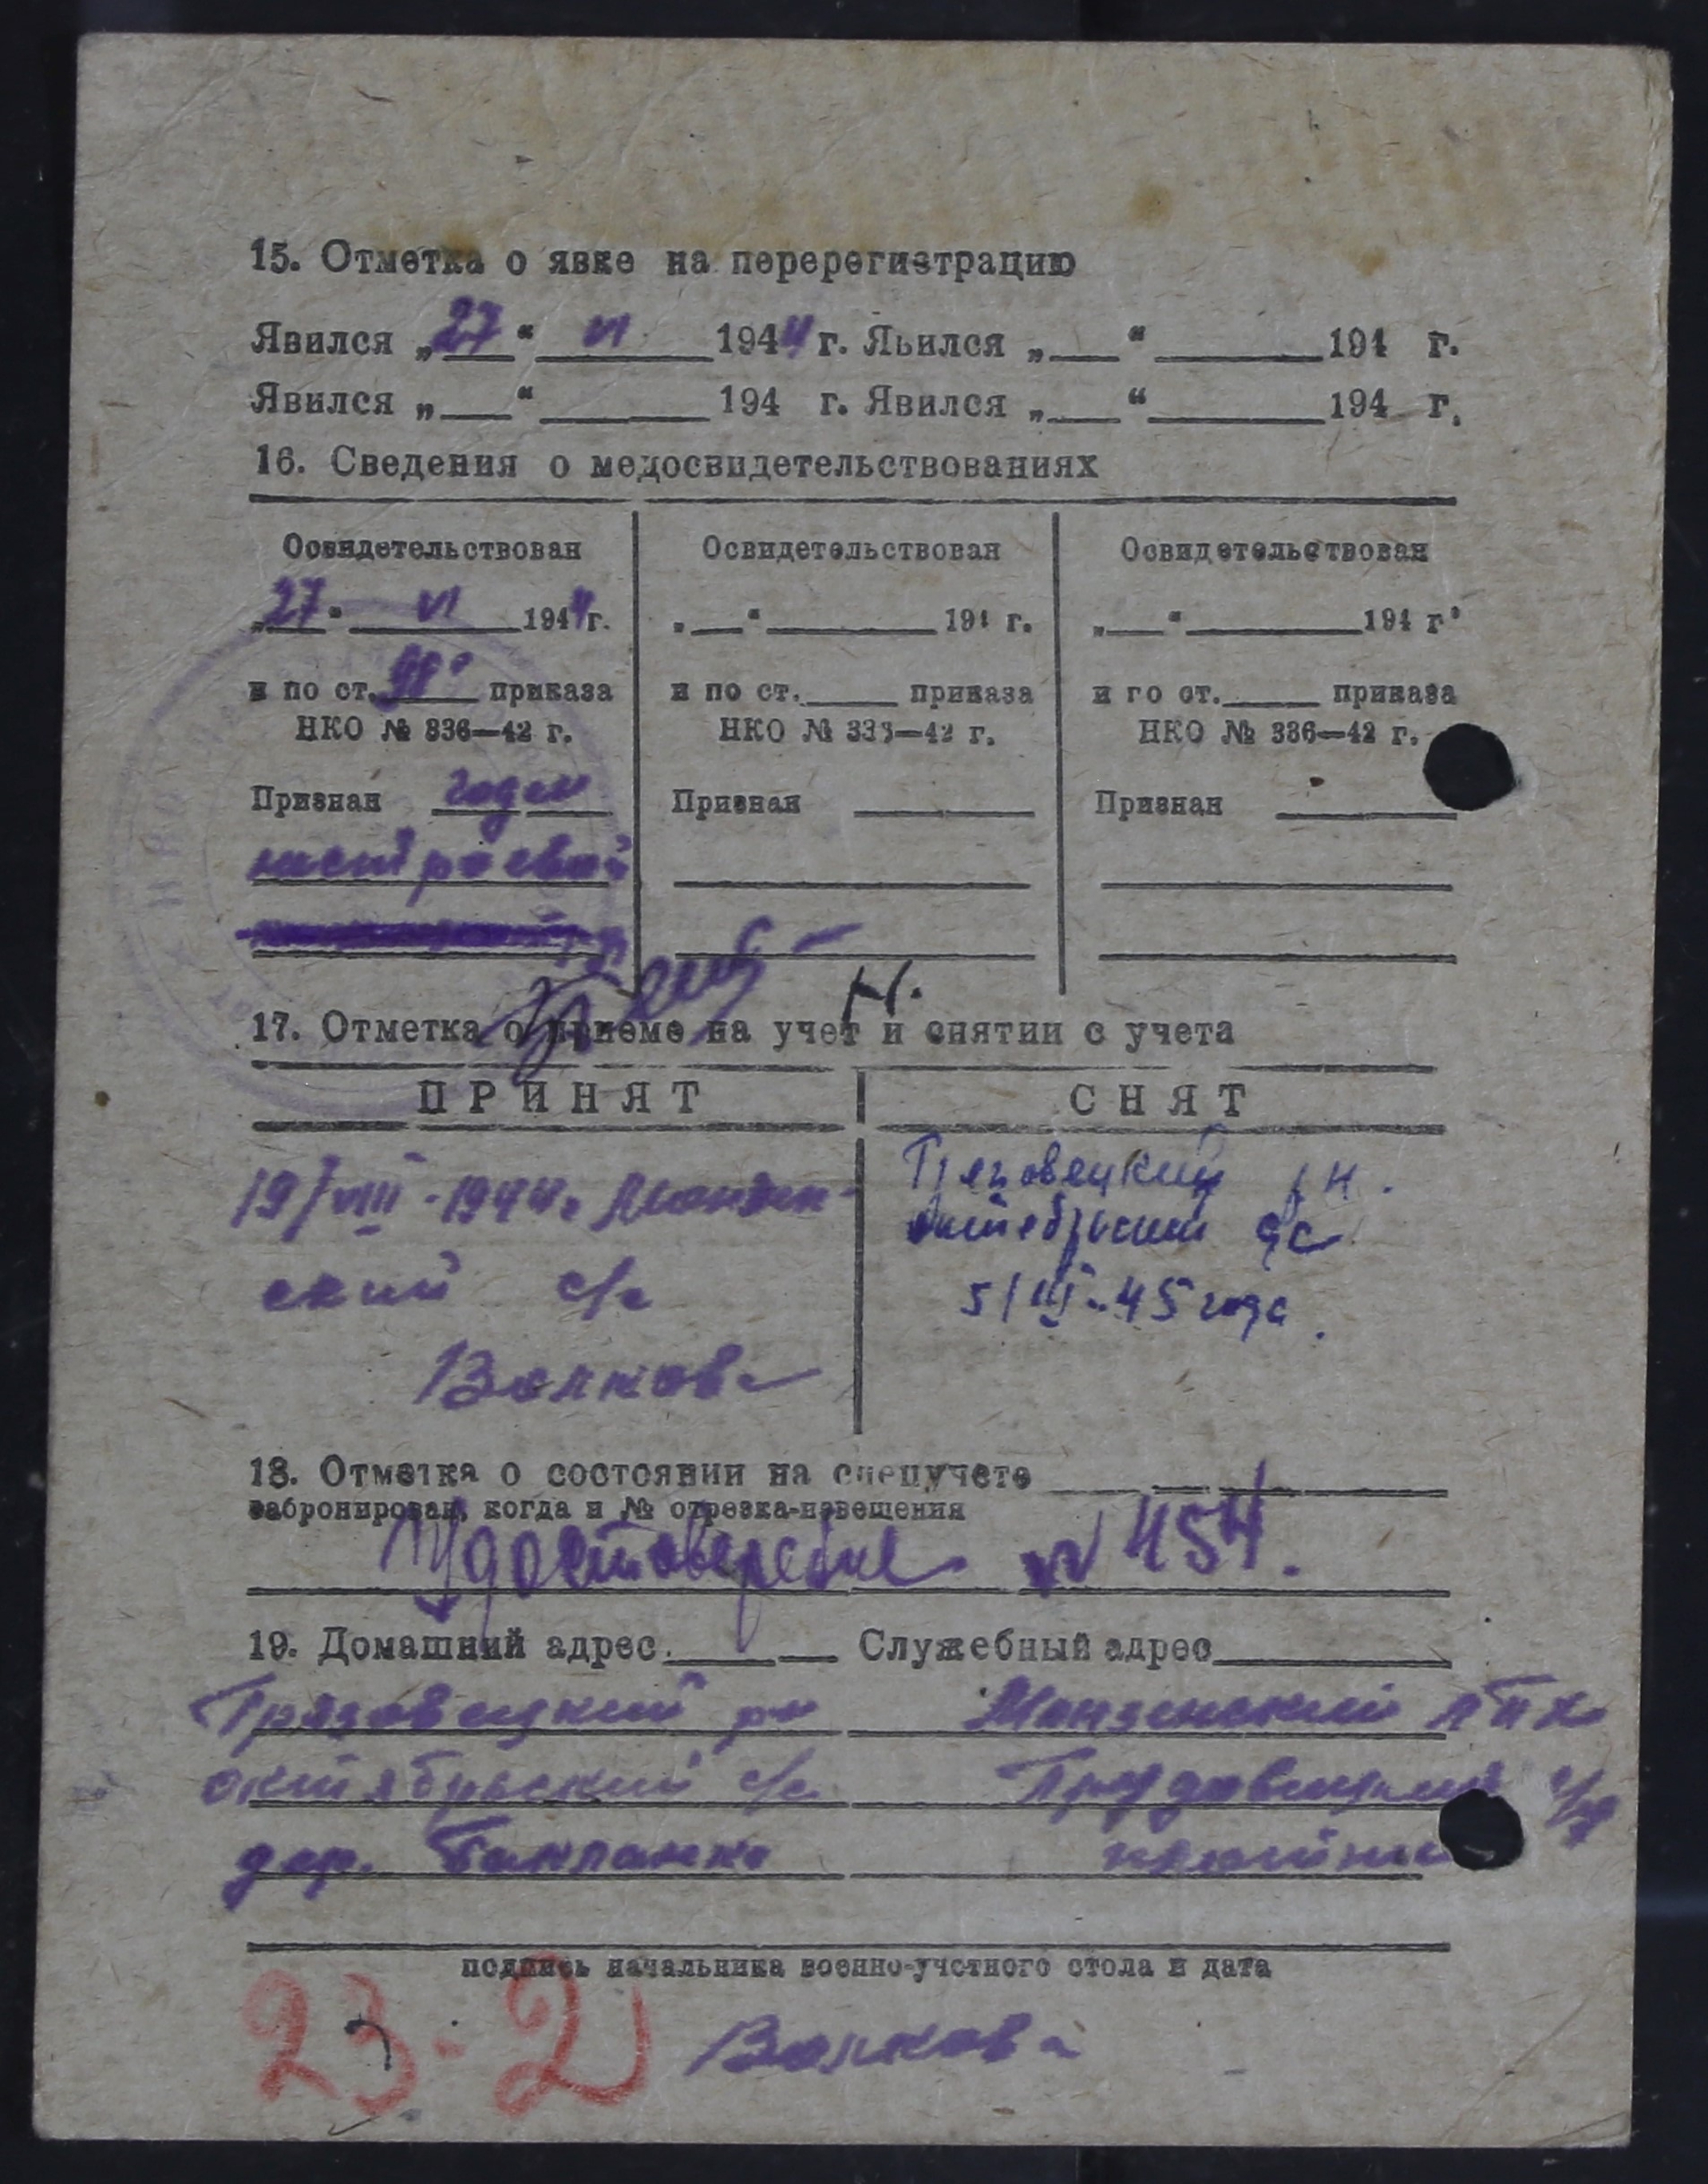 15. Отметка о явке на перерегистрацию
Явился „27“ VI 1944 г. Яьился „___“ ______ 194 г.
Явился „___“ ______ 194 г. Явился „___“ ______ 194 г.
16. Сведения о медосвидетельствованиях
Освидетельствован
„27“ VI 1944 г.
и по ст. приказа
НКО № 336—42 г.
Признан годен
нестроевой
Освидетельствован
„___“ ______ 194 г.
и по ст. ____ приказа
НКО № 336—42 г.
Признан
Освидетельствован
„___“ ______ 194 г.
и по ст. ____ приказа
НКО № 336—42 г.
Признан
Н.
17. Отметка о приеме на учет и снятии с учета
ПРИНЯТ
19/VIII-1944г. Монзен-
ский с/с
Волкова
СНЯТ
Грязовецкий рн.
октебрьский с/с
5/III-45 года.
18. Отметка о состоянии на спецучете
забронирован, когда и № отрезка-извещения
Удостоверение № 454.
19. Домашний адрес
Грязовецкий рн
октябрьский с/с
дер.
Служебный адрес
Монзенский
подпись начальника военно-учетного стола и дата
23-2 Волкова